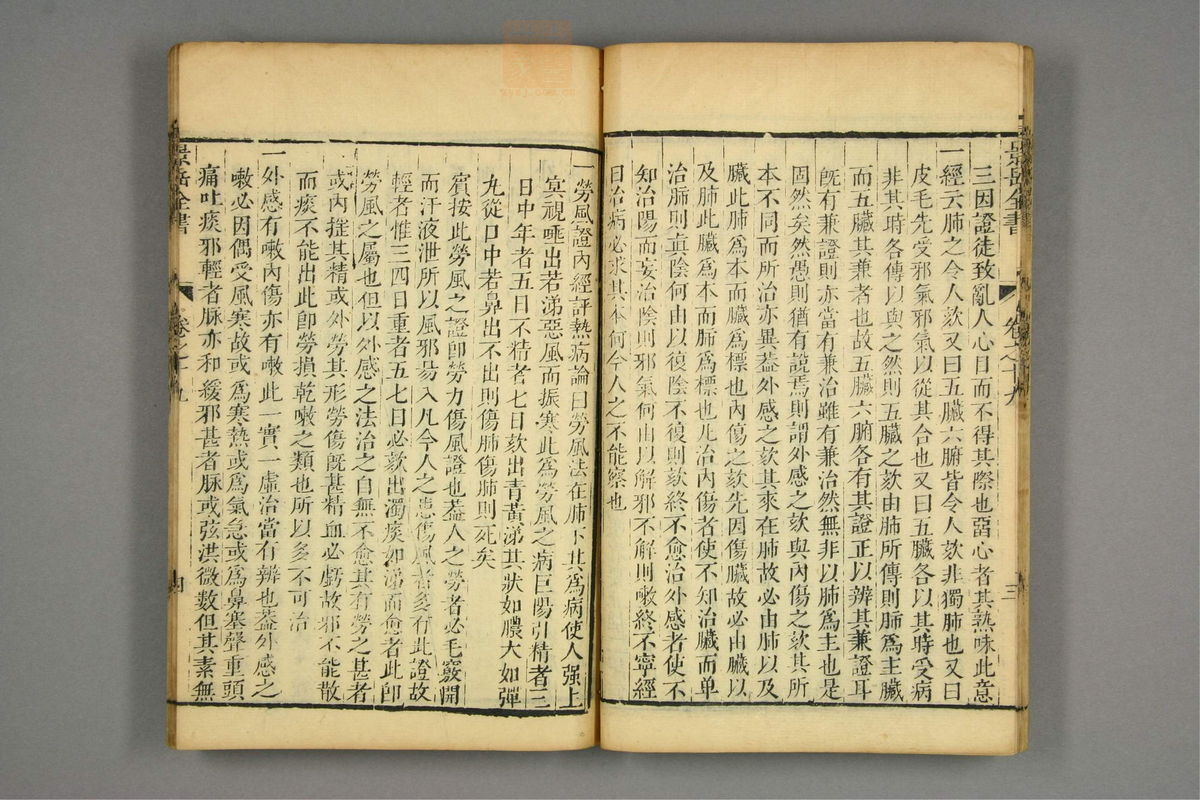 景岳全書
卷之十九
三
三因證徒致亂人心目而不得其際也留心者其熟味此意
一經云肺之令人欬又曰五臟六腑皆令人欬非獨肺也又曰
皮毛先受邪氣邪氣以從其合也又曰五臟各以其時受病
非其時各傳以與之然則五臟之欬由肺所傳則肺爲主臟
而五臟其兼者也故五臟六腑各有其證正以辨其兼證耳
旣有兼證則亦當有兼治雖有兼治然無非以肺爲主也是
固然矣然愚則猶有說焉則謂外感之欬與內傷之欬其所
本不同而所治亦異葢外感之欬其來在肺故必由肺以及
臟此肺爲本而臟爲標也內傷之欬先因傷臟故必由臟以
及肺此臟爲本而肺爲標也凡治內傷者使不知治臟而单
治肺則眞陰何由以復陰不復則欬終不愈治外感者使不
知治陽而妄治陰則邪氣何由以解邪不解則嗽終不寧經
曰治病必求其本何今人之不能察也
一勞風證內經評熱病論曰勞風法在肺下其爲病使人强上
冥視唾出若涕惡風而振寒此爲勞風之病巨陽引精者三
日中年者五日不精者七日欬出青黃涕其狀如膿大如彈
丸從口中若鼻出不出則傷肺傷肺則死矣
賓按此勞風之證卽勞力傷風證也葢人之勞者必毛竅開
而汗液泄所以風邪易入凡今人之患傷風者多有此證故
輕者惟三四日重者五七日必欬出濁痰如涕而愈者此卽
勞風之屬也但以外感之法治之自無不愈其有勞之甚者
或內摧其精或外勞其形勞傷旣甚精血必虧故邪不能散
而痰不能出此卽勞損乾嗽之類也所以多不可治
一外感有嗽內傷亦有嗽此一實一虛治當有辨也葢外感之
嗽必因偶受風寒故或爲寒熱或爲氣急或爲鼻塞聲重頭
痛吐痰邪輕者脉亦和緩邪甚者脉或弦洪微数但其素無
景岳全書
卷之十九
四